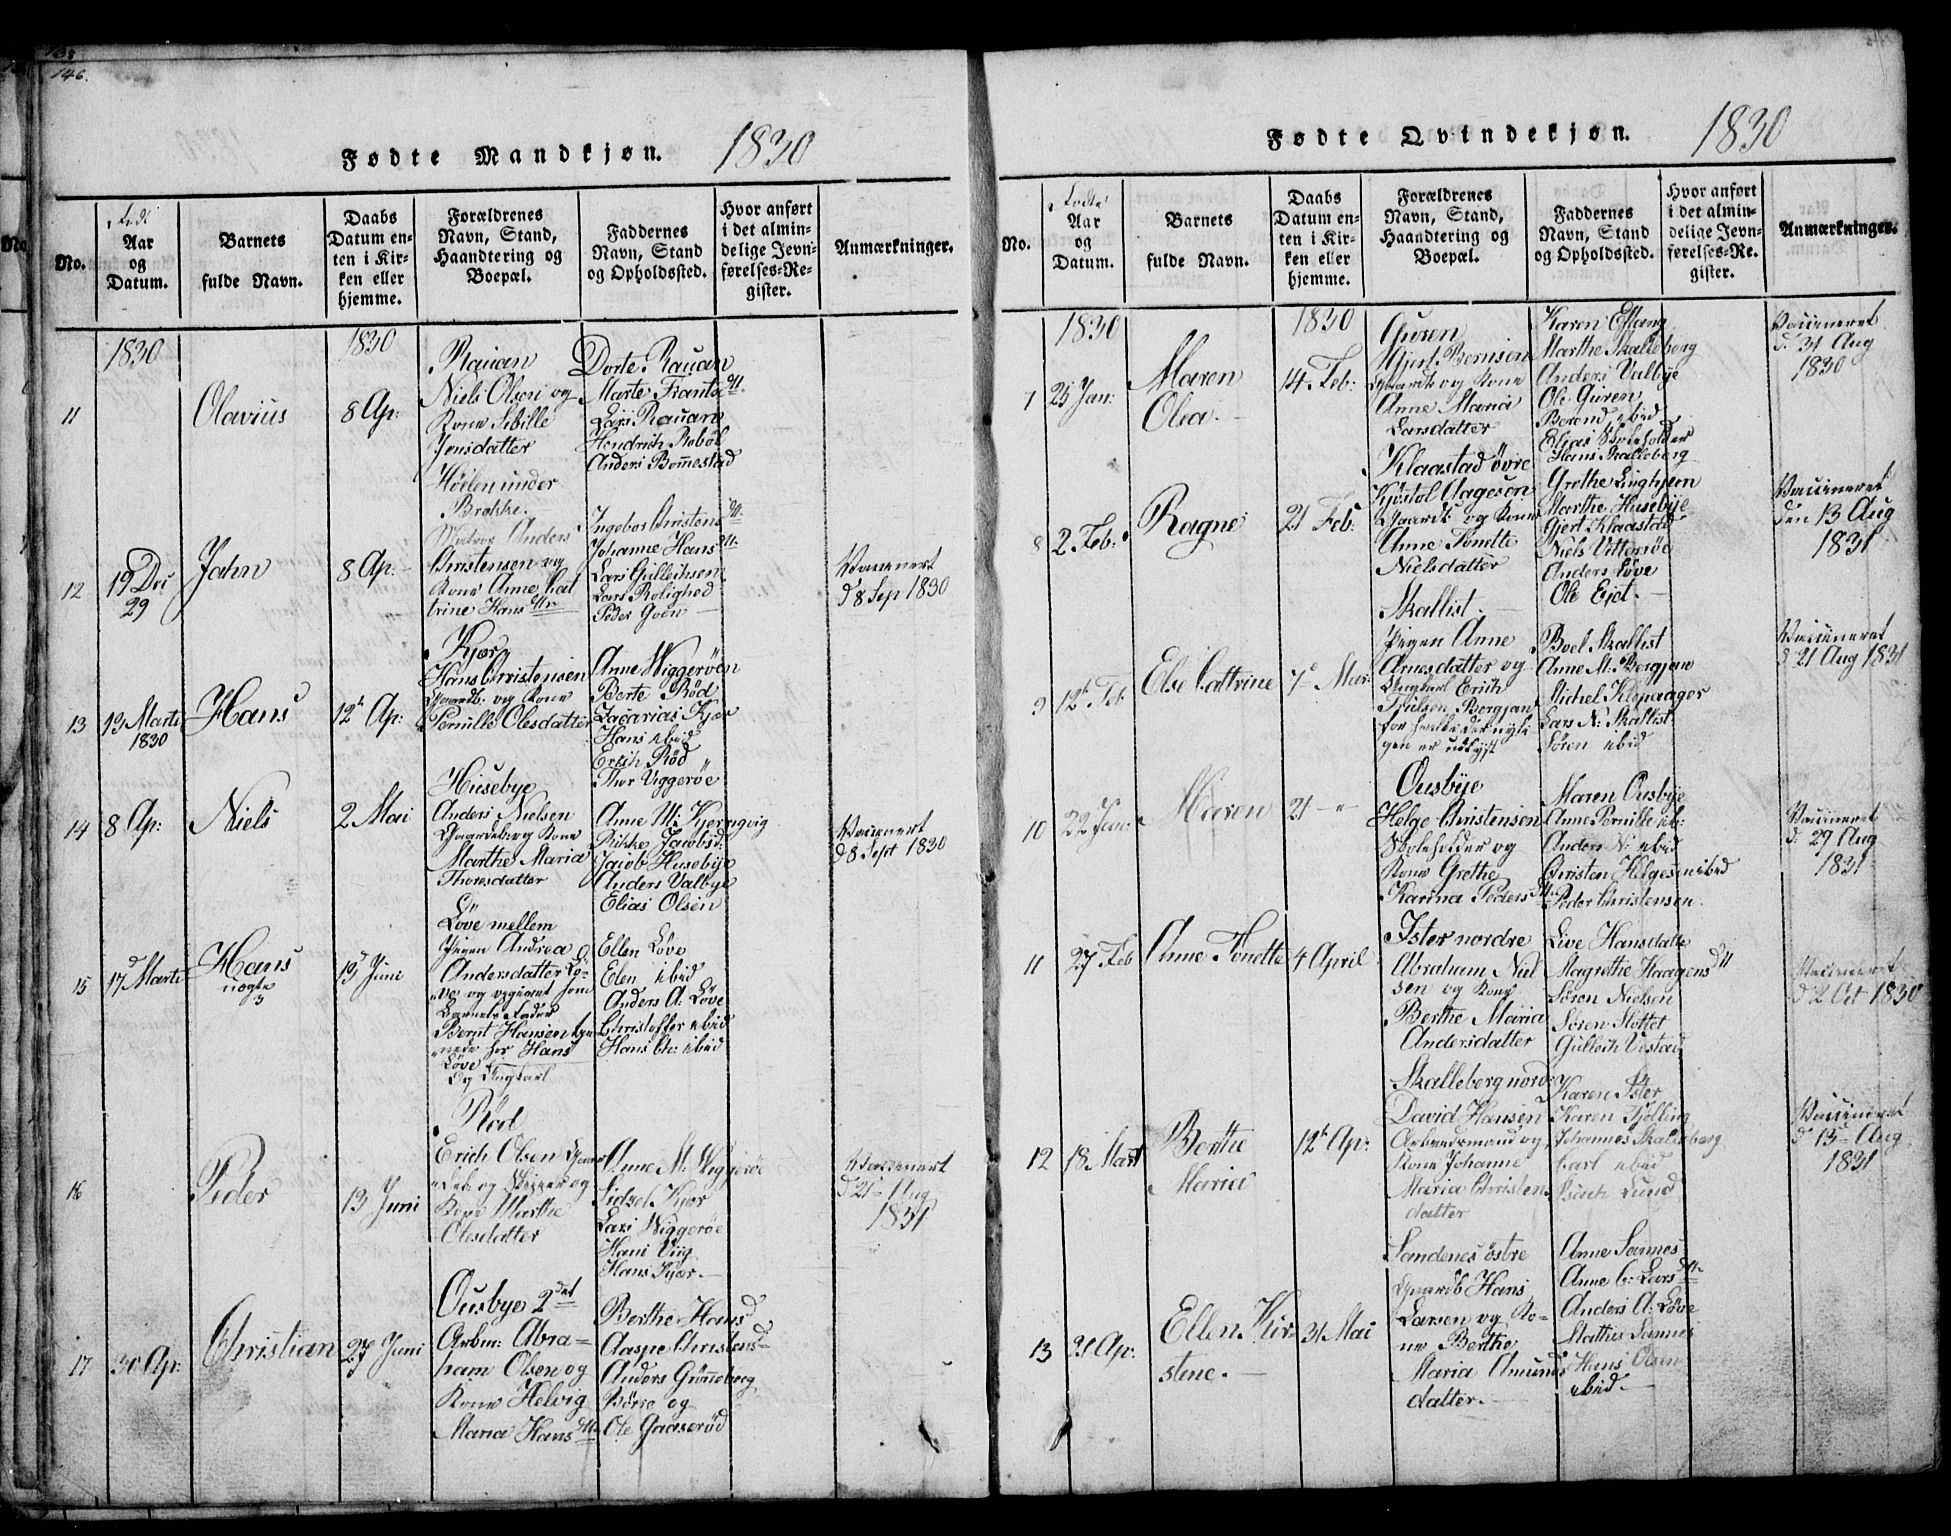 146.
Fødte Mandkjøn. 1830
No.
Født
Aar
og
Datum.
Barnets
fulde Navn.
Daabs
Datum en-
ten i Kir-
ken eller
hjemme.
Forældrenes
Navn, Stand,
Haandtering og
Boepæl.
Faddernes
Navn, Stand
og Opholdssted.
Hvor anført
i det almin-
delige Jevn-
førelses-Re-
gister.
Anmærkninger.
1830
1830
11
Olavius
8 Ap:
Rauan
Niels Olsen og
Kone Sibille
Jensdatter
Dorte Rauan
Marte Frants dtt.
Lars Rauan
Hendrich Rebøl
Anders Bommestad
12
19 Dec
29
Jahn
8 Ap:
Høelen under
Brekke.
Anders
Christensen og
Kone Anne Cat
trine Hans dttr
Ingebor Christens dtt.
Johanne Hans dtt.
Lars Gulleichsen
Lars Rolighed
Peder Goen
Vaccinert
d 8 Sep 1830
13
13 Marts
1830
Hans
12te Ap:
Kjær
Hans Christensen
Gaardb. og Kone
Pernille Olesdatter
Anne Wiggerøen
Berte Rød
Zacarias Kjær
Hans ibid
Erich Rød
Thor Viggerøe
14
8 Ap:
Niels
2 Mai
Husebye
Anders Nielsen
Gaardeb og Kone
Marthe Maria
Thoresdatter
Anne M: Kjerringvig
Rikke Jacobsd.
Jacob Husebye
Anders Valbye
Elias Olsen
Vaccinert
d 8 Sept 1830
15
17d Marts
Hans
uægte
3
13d Juni
Løve mellem
Pigen Andrea
Andersdatter Lö-
ve og opgivet som
Barnets Fader
Bernt Hansen tje
nende hos Hans
Løve
Og Ungkarl
Ellen Løve
Elen ibid
Anders A: Løve
Christoffer ibid
Hans Chr: ibid
16
Peder
13 Juni
Rød
Erich Olsen Gaar
deb og Skipper og
Kone Marthe
Olesdatter
Anne M. Wiggerøe
Sidsel Kjær
Lars Wiggerøe
Hans Viig
Hans Kjær.
Vaccinert
d 21 Aug
1831
17
30 Ap:
Christian
27 Juni
Ousbye 2det
Arbm: Abra=
ham Olsen og
Kone Helvig
Maria Hans dtt.
Berthe Hans d
Aaspe Christens d
Anders Grønneberg
Börre og
Ole Gaaserød
Fødte Qvindekjøn. 1830
No.
Fødte
Aar
og
Datum.
Barnets
fulde Navn.
Daabs
Datum en-
ten i Kir-
ken eller
hjemme.
Forældrenes
Navn, Stand,
Haandtering og
Boepæl.
Faddernes
Navn, Stand
og Opholdssted.
Hvor anført
i det almin-
delige Jevn-
førelses-Re-
gister.
Anmærkninger.
1830
1830
7
25 Jan:
Maren
Olea.
14 Feb:
Guren
Gjert Berntsen
Gaardb og Kone
Anne Maria
Larsdatter
Karen Eftang
Marthe Skalleberg
Anders Valbye
Ole Guren
Berend ibid
Elias Skoleholder
Hans Skalleberg
Vaccineret
d. 31 Aug
1830
8
2 Feb:
Ragne
21 Feb:
Klaastad øvre
Kjøstol Aagesen
Gaardb og Kone
Anne Tonette
Nielsdatter
Grethe Linghjem
Marthe Husebye
Gjert Klaastad
Niels Vittersøe
Anders Løve
Ole Ejet.
Vaccineret
den 13 Aug
1831
9
12te Feb.
Else Cattrine
7de Mar:
Skallist.
Pigen Anne
Arnesdatter og
Ungkarl Erich
Troelsen Bergjan
for hvilke der nyli
gen er udlyst
Boel Skallist
Anne M. Bergjan
Michel Klepaager
Lars N: Skallist
Sören ibid
Vaccineret
d 21 Aug 1831
10
22 Jan:
Maren
21 — "
Ousbye
Helge Christensen
Skoleholder og
Kone Grethe
Karina Peders dtt.
Maren Ousbye
Anne Pernille ib:
Anders N: ibid
Christen Helgesen ibid
Peder Christensen.
Vaccineret
d. 29 Aug
1831
11
27 Feb
Anne Tonette
4 April
Ister nordre
Abraham Niel
sen og Kone
Berthe Maria
Andersdatter
Live Hansdatte
Magrethe Haagens dtt
Sören Nielsen
Sören Slottet
Gulleich Vestad
Vaccineret
d 2 Oct 1830
12
18 Mart
Berthe
Maria
12te Ap:
Skalleberg nord:
David Hansen
Arbeidsmand og
Kone Johanne
Maria Christen
datter
Karen Ister
Karen Tjølling
Johannes Skalleberg
Carl ibid
Lund
Vaccineret
d 13 Aug
1831
13
21 Ap:
Ellen Kir=
stene.
31 Mai
Sandenes østre
Gaardb Hans
Larsen og Ko-
ne Berthe
Maria Amunds
datter.
Anne Sannes
Anne C: Lars dtt.
Anders A: Løve
Mathis Sannes
Hans Olsen
ibid.